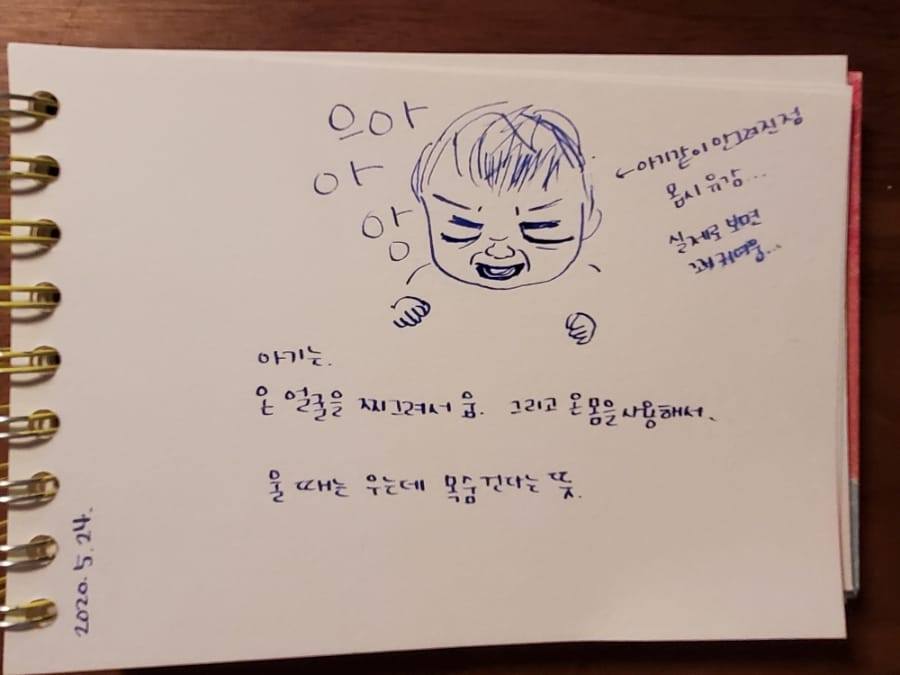 으아
아
앙
←아기같이 안그려진점
몹시 유감...
실제로 보면
꽤 귀여움...
아기는.
온 얼굴을 찌그려서 욺. 그리고 온몸을 사용해서.
울 때는 우는데 목숨 건다는 뜻.
2020. 5. 24.